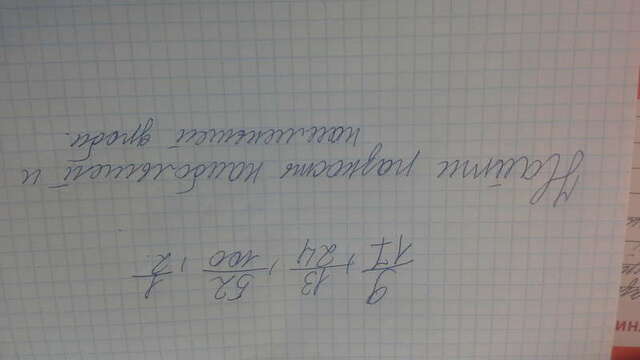 9/17, 13/24, 52/100, 1/2.
Найти разность наибольшей и
наименьшей дроби.